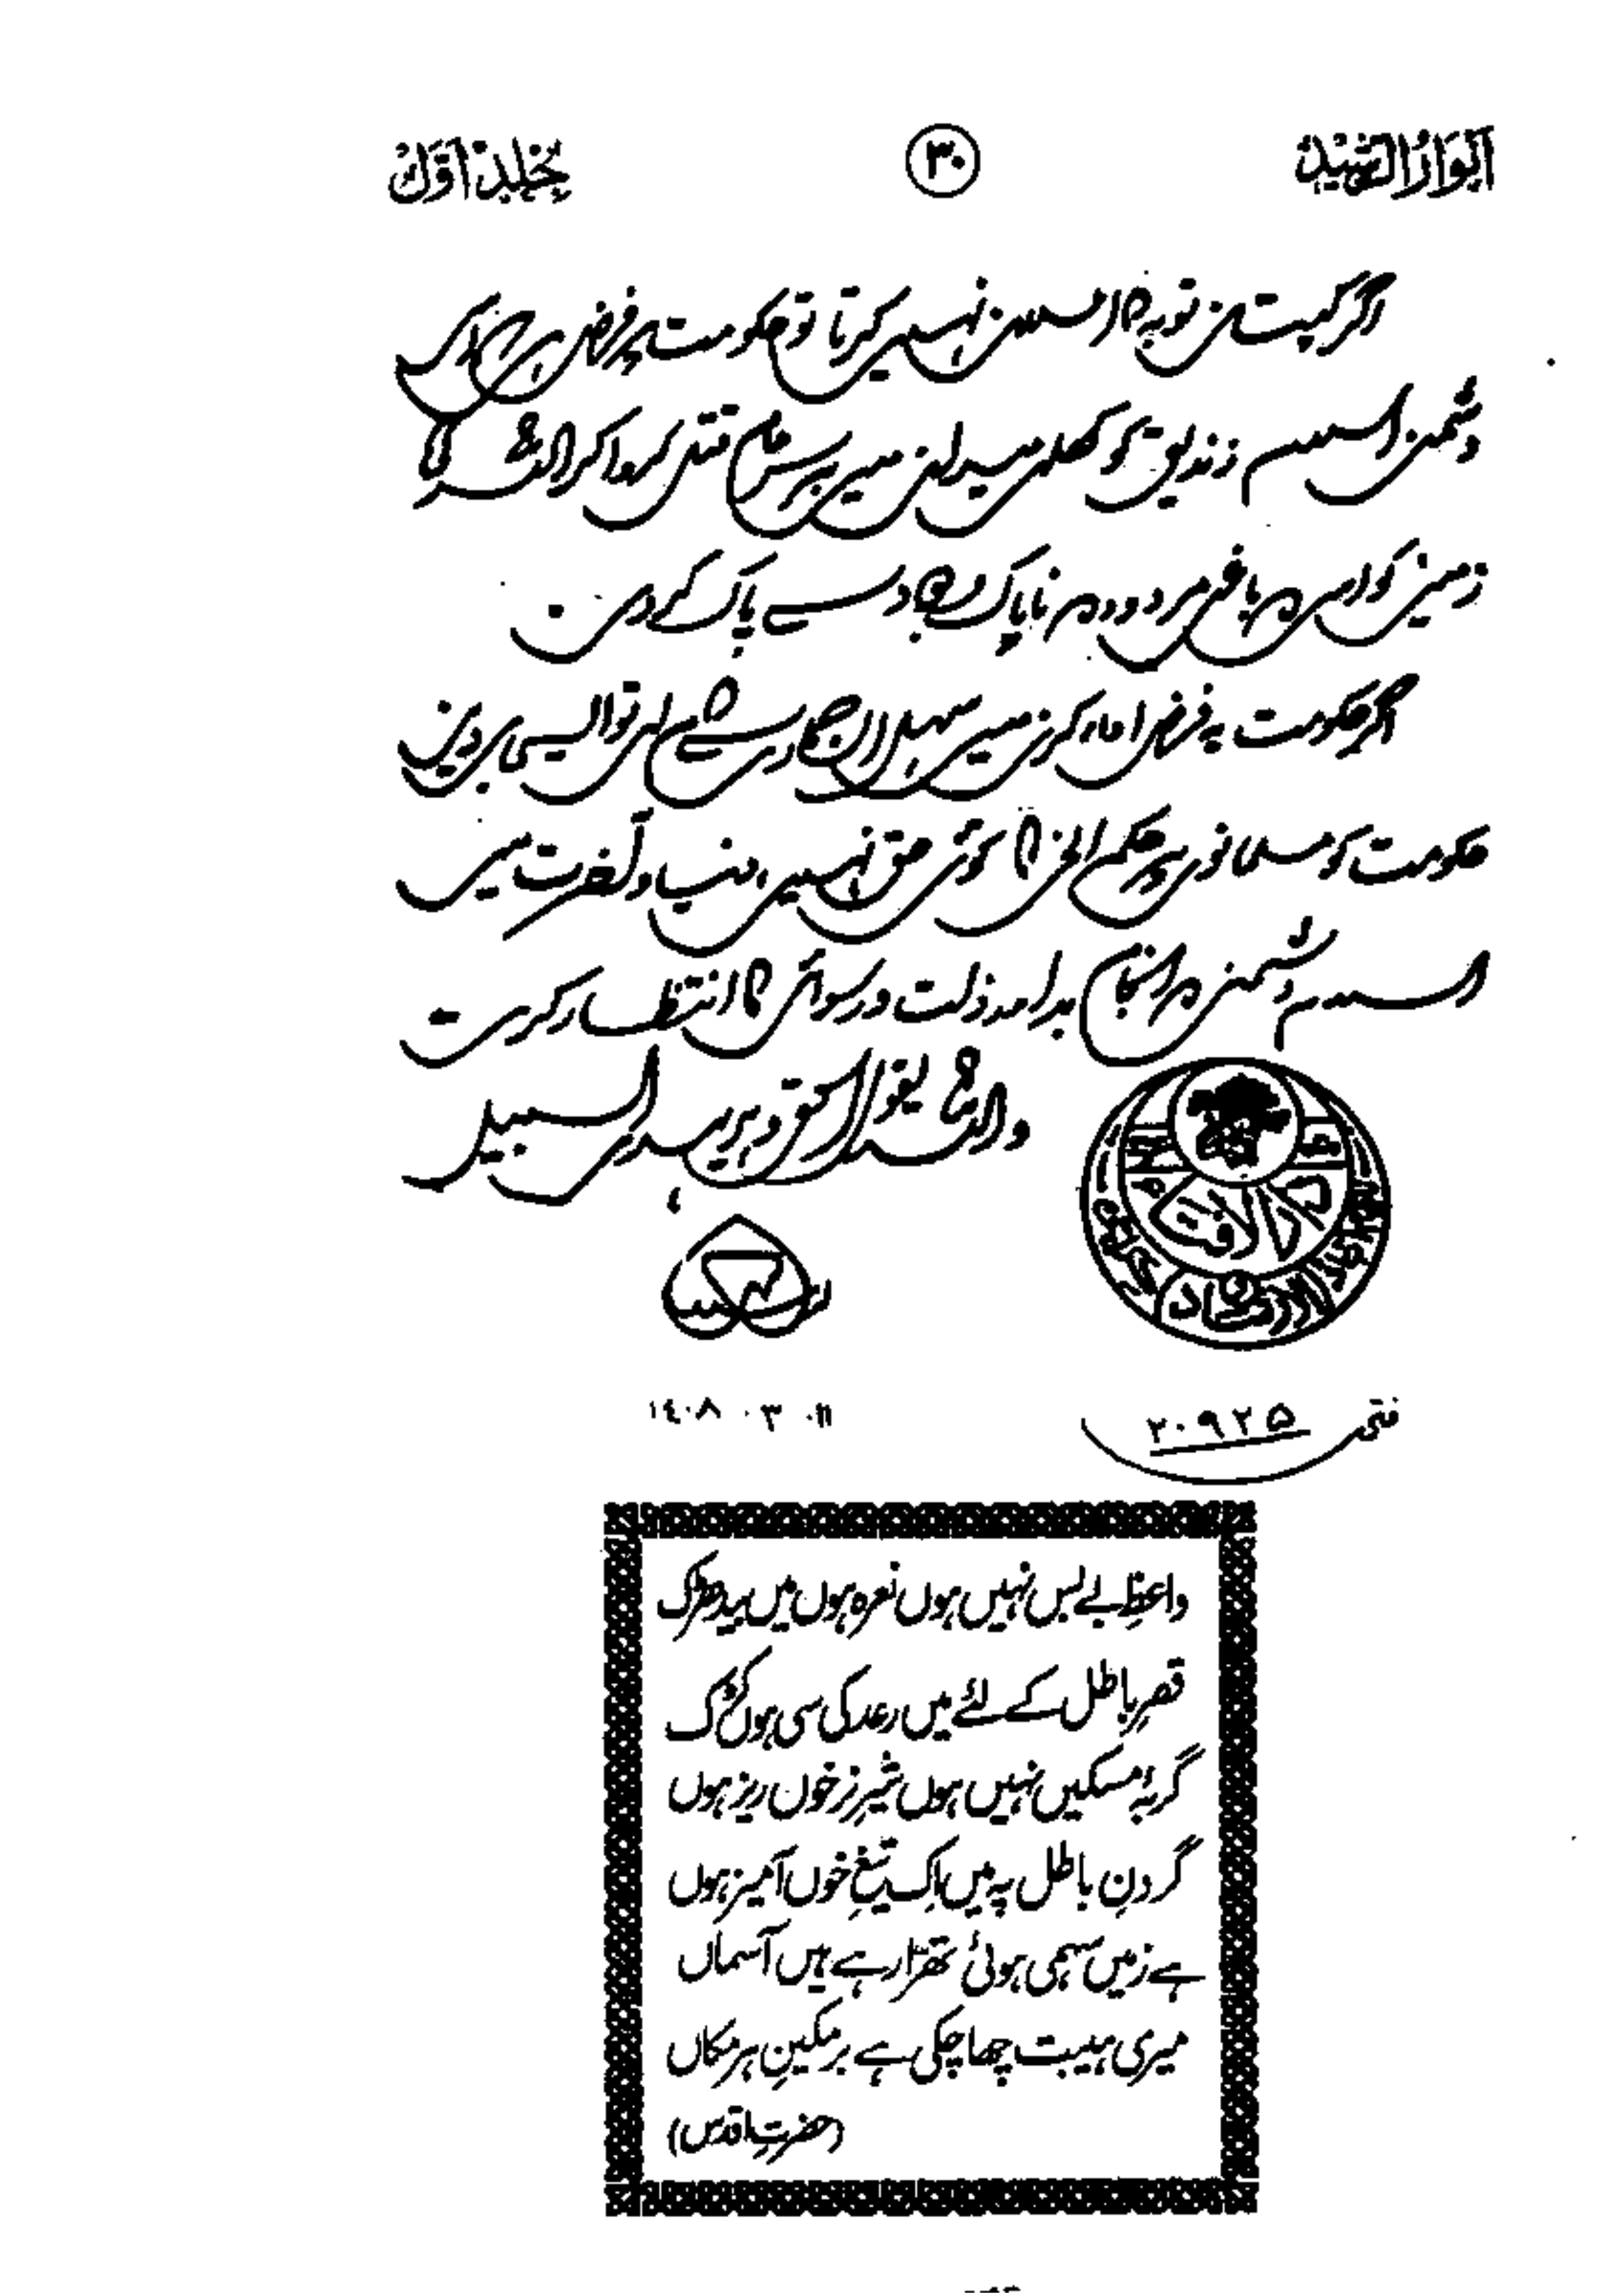 انوار الرشید ۳۰ جلد اول
اگر کیپٹن توبہ کا اعلان نہیں کرتا تو حکومت پر فرض ہے کہ اس
دشمن اسلام زندیق کو کھلے میدان میں برسر عام قتل کروا کر اللہ کی
زمین کو اس باغی مردود ناپاک وجود سے پاک کرے
اگر حکومت یہ فرض ادا کرنے میں سہل انگاری سے کام لے تو ایسی بے دین
حکومت کو مسلمانوں پر حکمرانی کا کوئی حق نہیں، دنیا و آخرت میں
اسلام دشمنی انجام بد اور ذلت و رسوائی کا انتظار کرے
واللہ یقول الحق وہو یہدی السبیل
رشید
۱۴۰۸ ۰۳ ۱۱
۲۰۹۲۵
واعظِ بے بس نہیں ہوں نعرہ ہوں میں بیدھڑک
قصرِ باطل کے لئے میں رعد کی سی ہوں کڑک
گربۂ مسکیں نہیں ہوں شیرِ نر خوں ریز ہوں
گردنِ باطل پہ میں اِک تیغِ خوں آمیز ہوں
ہے زمیں سہمی ہوئی تھرّا رہے ہیں آسماں
میری ہیبت چھا چکی ہے بر مکینِ ہر مکاں
(حضرتِ اقدس)